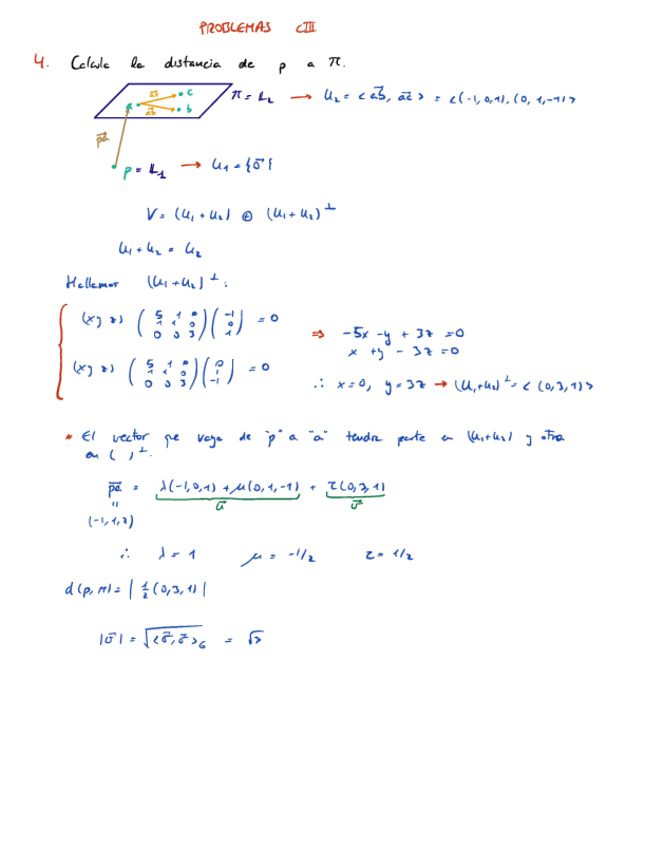 PROBLEMAS CIII
4. Calcula la distancia de p a π.
ac c
a ab b
π = L₂ → U₂ = < ab, ac > = <(-1,0,1), (0,1,-1)>
pa
p = L₁ → U₁ = {0}
V = (U₁ + U₂) ⊕ (U₁ + U₂)⊥
U₁ + U₂ = U₂
Hallamos (U₁ + U₂)⊥ :
(x y z) (5 1 0 / 1 1 0 / 0 0 3) (-1 / 0 / 1) = 0
⇒ -5x - y + 3z = 0
x + y - 3z = 0
(x y z) (5 1 0 / 1 1 0 / 0 0 3) (0 / 1 / -1) = 0
∴ x = 0, y = 3z → (U₁+U₂)⊥ = < (0,3,1) >
* El vector que vaya de "p" a "a" tendra parte en (U₁+U₂) y otra
en ( )⊥.
pa = λ(-1,0,1) + μ(0,1,-1) + τ(0,3,1)
u v
(-1,1,2)
∴ λ = 1 μ = -1/2 τ = 1/2
d(p, π) = | ½ (0,3,1) |
|v| = √<v, v>G = √3